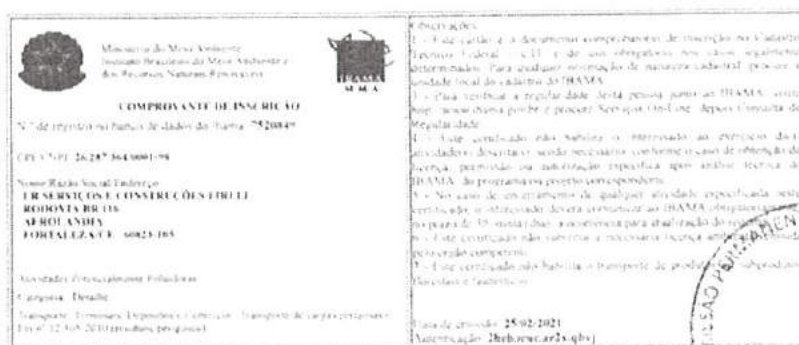 Ministério do Meio Ambiente
Instituto Brasileiro do Meio Ambiente e
dos Recursos Naturais Renováveis
IBAMA
M M A
COMPROVANTE DE INSCRIÇÃO
N.º de registro no banco de dados do Ibama: 7520849
CPF/CNPJ: 26.287.364/0001-98
Nome/Razão Social/Endereço
SERVIÇOS E CONSTRUÇÕES EIRELI
RODOVIA BR 116
AEROLANDIA
FORTALEZA/CE 60823-105
Atividades Potencialmente Poluidoras
Categoria / Detalhe
Transporte, Terminais, Depósitos e Comércio / Transporte de cargas perigosas -
Lei nº 12.305/2010 (resíduos perigosos)
Observações:
1 - Este cartão é o documento comprobatório de inscrição no Cadastro
Técnico Federal - CTF e de uso obrigatório nos casos legalmente
determinados. Para qualquer informação de natureza cadastral, procure a
unidade local do cadastro do IBAMA.
- Para verificar a regularidade desta pessoa junto ao IBAMA, visite
http: www.ibama.gov.br e procure Serviços On-Line, depois Consulta de
Regularidade
- Este certificado não habilita o interessado ao exercício da(s)
atividade(s) descrita(s), sendo necessário, conforme o caso de obtenção de
licença, permissão ou autorização específica após análise técnica do
IBAMA, do programa ou projeto correspondente
- No caso de encerramento de qualquer atividade especificada neste
certificado, o interessado deverá comunicar ao IBAMA obrigatoriamente
no prazo de 30 (trinta) dias, a ocorrência para atualização do
- Este certificado não substitui a necessária licença
pelo órgão competente
- Este certificado não habilita o transporte de subprodutos
florestais e faunísticos
Data de emissão: 25/02/2021
Autenticação:
PERMANEN